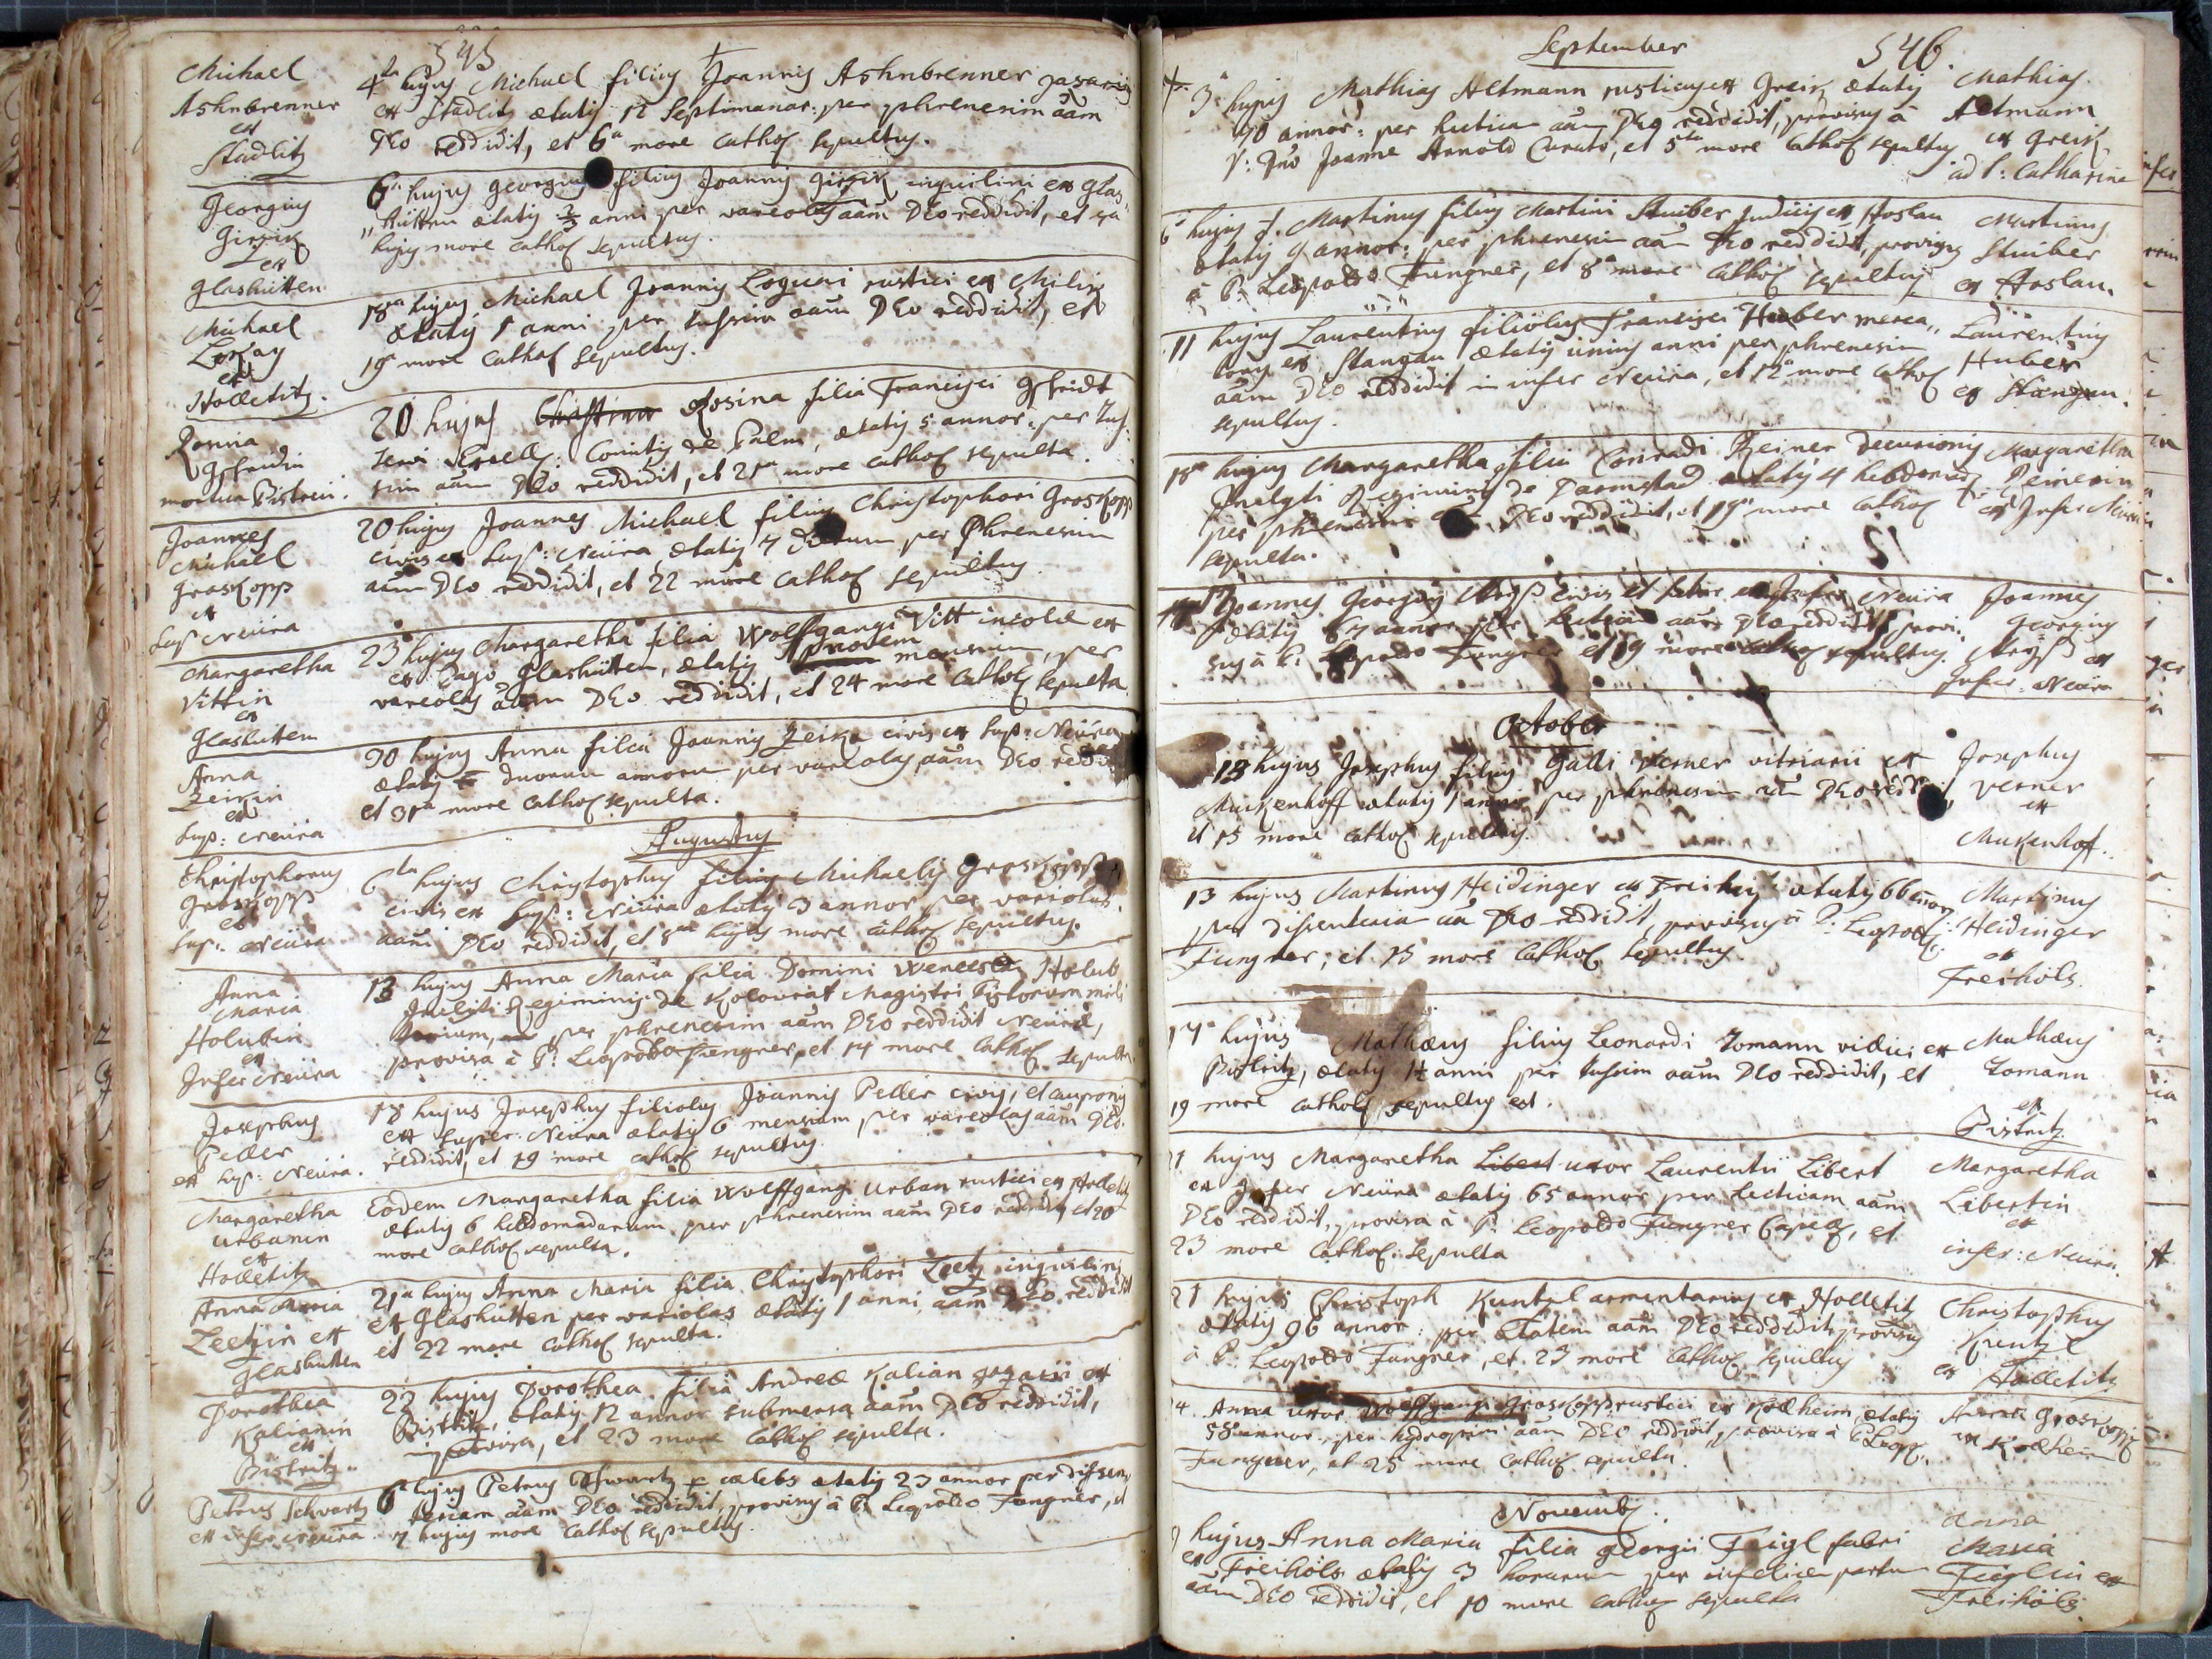 545
Michael
Ashnbrenner
ex
Stadlitz
4ta hujus Michael filius Joannis Ashnbrenner
ex Stadlitz ætatis 12 Septimanar: per phrenesim aãm
DEo reddidit, et 6a more cathol sepultus.
Georgius
Girzik
ex
Glashütten
6ta hujus Georgius filius Joannis Girzik inquilini ex Glas
hütten ætatis anni per vareolas aãm DEo reddidit, et
hujus more cathol sepultus.
Michael
ex
Holletitz.
18va hujus Michael Joannis rustici ex
ætatis 1 anni per tussim aãm DEo reddidit, et
19a more cathol sepultus.
Rosina
Gsfridin
mortua Bistricii.
20 hujus Rosina filia Francisci Gsfridt
Comitis de Palm, ætatis 5 annor: per tus
sim aãm DEo reddidit, et 21ma more cathol sepulta.
Joannes
Michael
Groskopp
ex
Sup: Neüra
20 hujus Joannes Michael filius Christophori Groskopp
civis ex Sup: Neüra, ætatis 7 dierum per Phrenesim
aãm DEo reddidit, et 22 more cathol sepultus.
Margaretha
Vittin
ex
Glashütten
23 hujus Margaretha filia Wolffgangi Vitt incolæ ex
ex Pago Glashütten, ætatis novem mensium, per
vareolas aãm DEo reddidit, et 24 more cathol sepulta
Anna
Zeikin
ex
Sup: Neüra
30 hujus Anna filia Joannis Zeik civis ex Sup: Neüra
ætatis duorum annorum per vareolas, aãm DEo reddidit
et 31ma more cathol sepulta.
Augustus
Christophorus
Groskopp
ex
Sup: Neüra
6ta hujus Christophus filius Michaelis Groskopp
civis ex Sup: Neüra ætatis 3 annor per variolas
aãm DEo reddidit, et 8va hujus more cathol sepultus.
Anna
Maria
Holubin
ex
Infer Neüra
13 hujus Anna Maria filia Domini Holub
Inclyti Regiminis de Kolowrat Magistri Pistorum
per phrenesim aãm DEo reddidit Neüræ,
provisa à P: Leopoldo Fungner, et 14 more Cathol. sepulta.
Josephus
Peller
ex Sup: Neüra.
18 hujus Josephus filiolus Joannis Peller civis, et cauponis
ex Super: Neüra ætatis 6 mensium per vareolas aãm DEo
reddidit, et 19 more cathol sepultus.
Margaretha
Urbanin
ex
Holletitz
Eodem Margaretha filia Wolffgangi Urban rustici ex Holletitz
ætatis 6 hebdomadarum per phrenesim aãm DEo reddidit, et 20
more cathol sepulta.
Anna Maria
Zeetzin ex
Glashütten
21a hujus Anna Maria filia Christophori Zeetz inquilini
ex Glashütten per variolas ætatis 1 anni aãm DEo reddidit
et 22 more cathol sepulta.
Dorothea
Kalianin
ex
Bistritz.
22 hujus Dorothea filia Andreæ Kalian ex
Bistritz, ætatis 12 annor submersa aãm DEo reddidit,
improvisa, et 23 more cathol sepulta.
Petrus Schwartz
ex infer Neüra
6 hujus Petrus Schwartz cælebs ætatis 23 annor per dissen
teriam aãm DEo reddidit, provisus à P. Leopoldo Fungner, et
7 hujus more cathol sepultus.
September
546.
3a hujus Mathias Altmann rusticus ex Greik ætatis
40 annor: per hectica aãm DEo reddidit, provisus à
V: Dno Joanne Arnold Curato, et 5ta more Cathol sepultus
Mathias
Altmann
ex Greik
ad S: Catharinæ
6 hujus Martinus filius Martini Stuiber Judicis ex Hoslau
ætatis 9 annor: per phrenesim aãm DEo reddidit, provisus
à P. Leopoldo Fungner, et 8a more Cathol sepultus
Martinus
Stuiber
ex Hoslau.
11 hujus Laurentius filiolus Francisci Huber merca
toris ex Stangau ætatis unius anni per phrenesim
aãm DEo reddidit in infer Neüra, et 12a more Cathol
sepultus.
Laurentius
Huber
ex Stangau.
18va hujus Margaretha filia Conradi Reiner Decurionis
Inclyti Regiminis de Darmstad ætatis 4 hebdomad
per phrenesim DEo reddidit, et 19a more Cathol
sepulta.
Margaretha
Reinerin
ex Infer Neüra
17 Joannes Georgius civis et faber ex Infer Neüra
ætatis 67 annor per hecticam aãm DEo reddidit, provi
sus à P: Leopoldo Fungner et 19 more cathol sepultus.
Joannes
Georgius
ex
Infer Neüra
October
13 hujus Josephus filius Galli Verner vitriarii ex
Mukenhoff ætatis 1 anni per phrenesim aãm DEo reddidit
et 15 more cathol sepultus.
Josephus
Verner
ex
Mukenhof.
13 hujus Martinus Heidinger ex Freihöls ætatis 66 annor
per dissenteria aã DEo reddidit, provisus à P: Leopoldo
Fungner, et 15 more Cathol sepultus.
Martinus
Heidinger
ex
Freihöls.
17a hujus Mathæus filius Leonardi Zomann ex
Bistritz, ætatis 1½ anni per tussim aãm DEo reddidit, et
19 more cathol sepultus est.
Mathæus
Zomann
ex
Bistritz.
21 hujus Margaretha Libert uxor Laurentii Libert
ex Infer Neüra ætatis 65 annor per hecticam aãm
DEo reddidit, provisa à P. Leopoldo Fungner Capell, et
23 more Cathol: sepulta
Margaretha
Libertin
ex
infer: Neüra.
21 hujus Christoph Kuntzl armentarius ex Holletitz
ætatis 96 annor: per ætatem aãm DEo reddidit provisus
à P. Leopoldo Fungner, et 23 more Cathol sepultus
Christophus
Kuntzl
ex Holletitz
24 Anna uxor Wolffgangi Groskopp rustici ex Kolheim, ætatis
58 annor: per hydropsim aãm DEo reddidit, provisa à P: Leop.
Fungner, et 25 more cathol sepulta.
Anna Groskoppin
ex Kolheim
Novemb.
hujus Anna Maria filia Georgii Feigl fabri
ex Freihöls ætatis 3 horarum per infelicem partum
aãm DEo reddidit, et 10 more cathol sepulta
Anna
Maria
Feiglin ex
Freihöls.